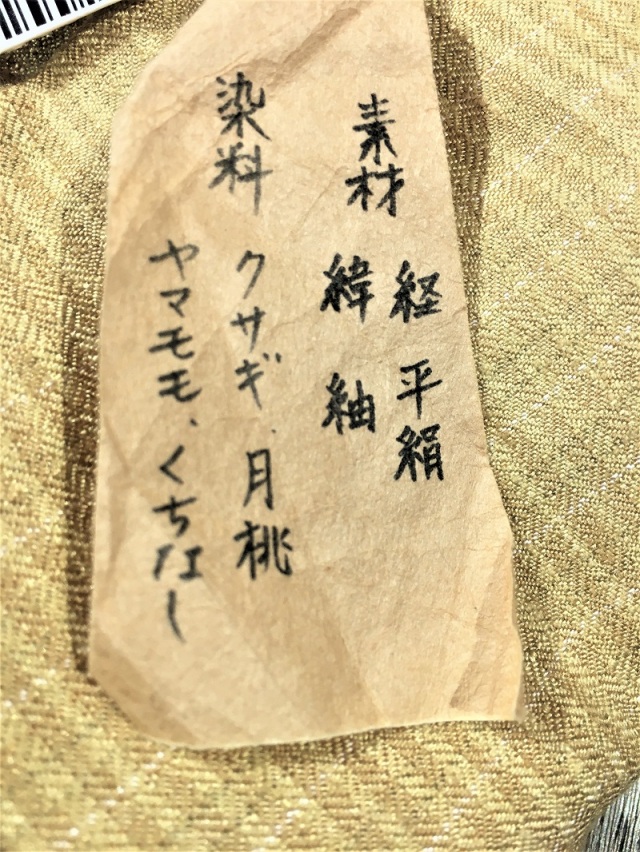 素材 経 平絹
緯 紬
染料 クサギ、月桃
ヤマモモ、くちなし